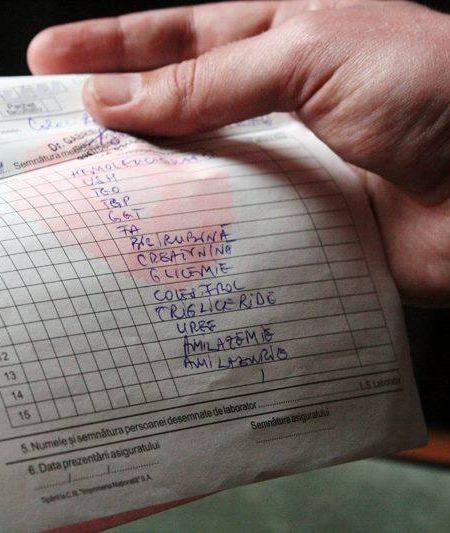 Dr.
Semnătura me
HEMOLEUCOGRAMA
VSH
TGO
TGP
GGT
FA
BILIRUBINA
CREATININA
GLICEMIE
COLESTROL
TRIGLICERIDE
UREE
12 AMILAZEMIE
13 AMILAZURIE
14
15
L.S. Laborator
5. Numele şi semnătura persoanei desemnate de laborator
6. Data prezentării asiguratului
Semnătura asiguratului
Tipărit la C.N. "Imprimeria Naţională" S.A.